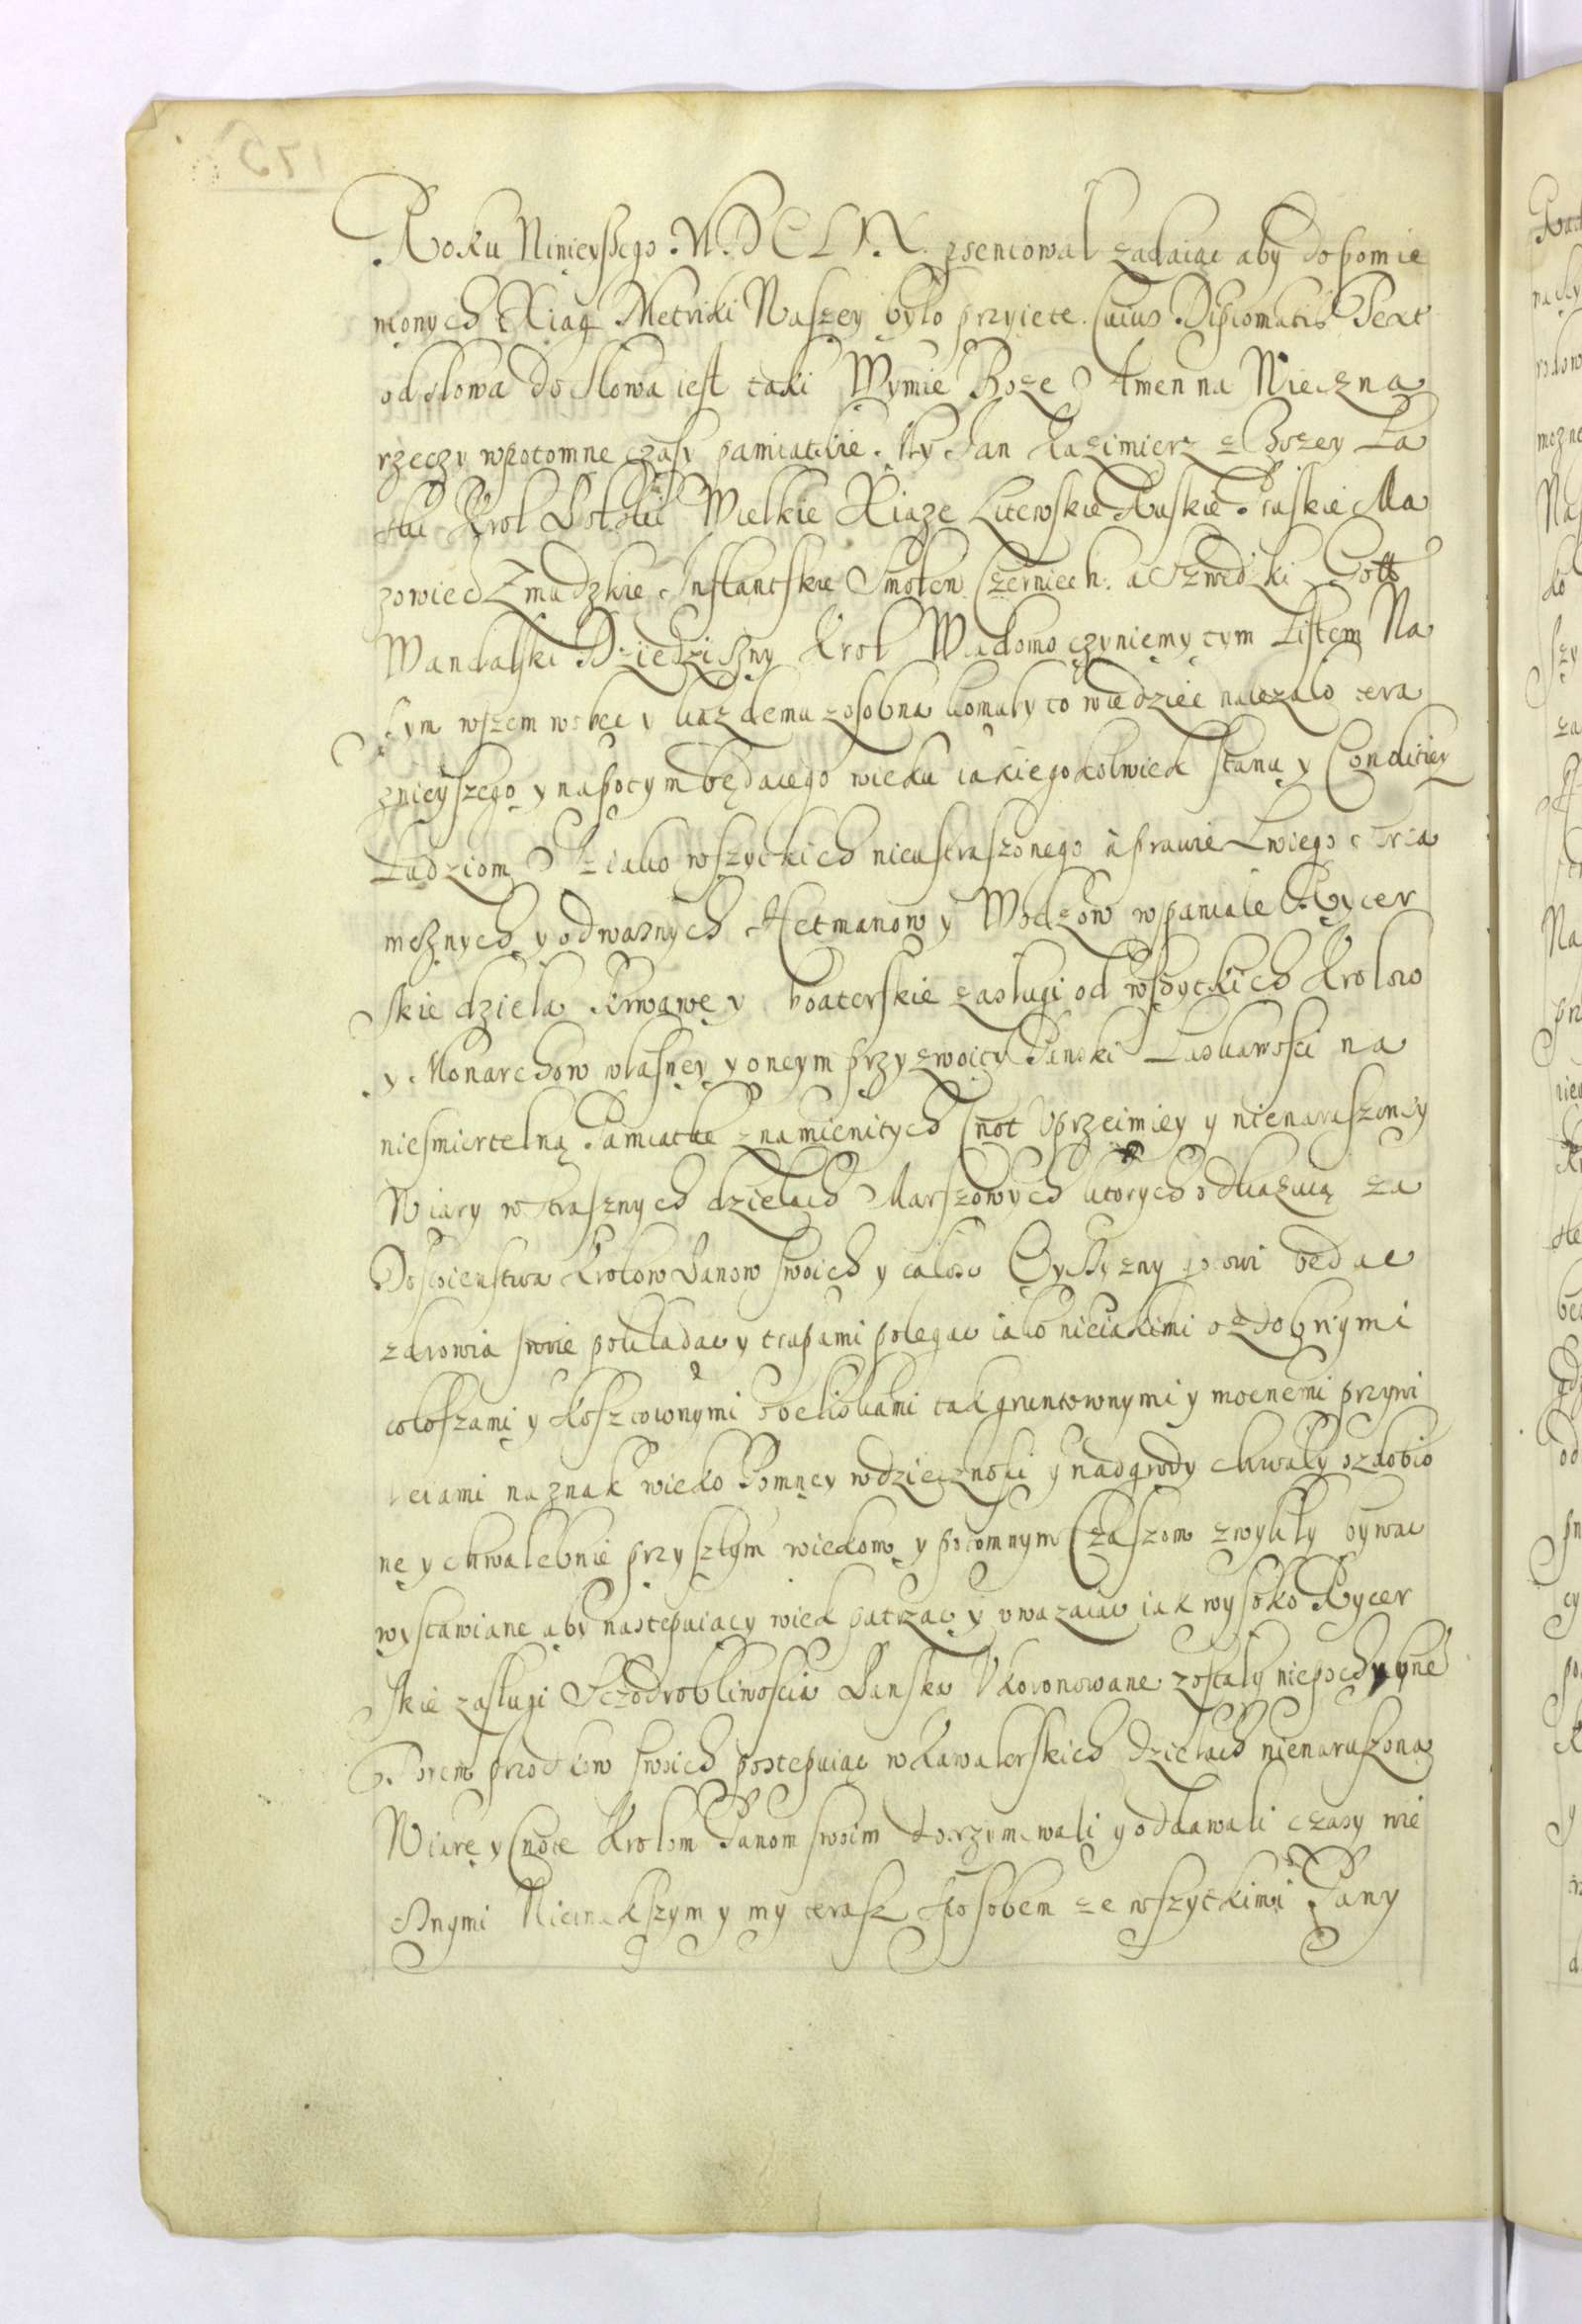 Roku Ninieyszego M.D C L I X. psentował żądaiąc aby do pomie
nionych Xiąg Metriki Naszey było przyięte. Cuius Diplomatis Text
od słowa do słowa iest taki W ymie Boże Amen na Wieczną
rzeczy w potomne czasy pamiątkie. My Jan Kazimierz z Bożey Ła
ski Krol Polski Wielkie Xiąże Litewskie Ruskie Pruskie Ma
zowiec Zmudzkie Inflantskie Smolen. Czerniech. a Szwedzki Gotts
Wandalski Dziedziczny Krol Wiadomo czyniemy tym Listem Na
szym wszem wobec y każdemu zosobna komu by to wiedzieć należało tera
znieyszego y napotym będącego wieku iakiegokolwiek stanu y Conditiey
Ludziom Iż iako wszytkich nieustraszonego a prawie Lwiego serca
mężnych y odważnych Hetmanow y Wodzow wspaniałe Rycer
skie dzieła Krwawe y boaterskie zasługi od wszytkich Krolow
y Monarchow własney y oneym przyzwoitey Panski Łaskawości na
nieśmiertelną Pamiątkie znamienitych Cnot Uprzeimiey y nienaruszoney
Wiary w strasznych dziełach Marszowych ktorych odkazuią za
Dostoienstwa Krolow Panow swoich y całość Oyczyzny gotowi będąc
zdrowia swoie pokładać y trupami polegać iako nieiakimi ozdobnymi
coloszami y kosztownymi obeliskami tak gruntownymi y mocnemi przywi
leiami na znak wieko Pomney wdzięczności y nadgrody chwały ozdobio
ne y chwalebnie przyszłym wiekom y potomnym Czaszom zwykły bywać
wystawiane aby nastepuiący wiek patrząc y uważaiąc iak wysoko Rycer
skie zasługi Szczodrobliwością Panską Ukoronowane zostały niepochybne
torem przodkow swoich postepuiąc w Kawalerskich dziełach nienaruszoną
Wiarę y Cnote Krolom Panom swoim dotrzymywali y oddawali czasy wie
cznymi Nieinakszym y my terasz sposobem ze wszytkimi Pany